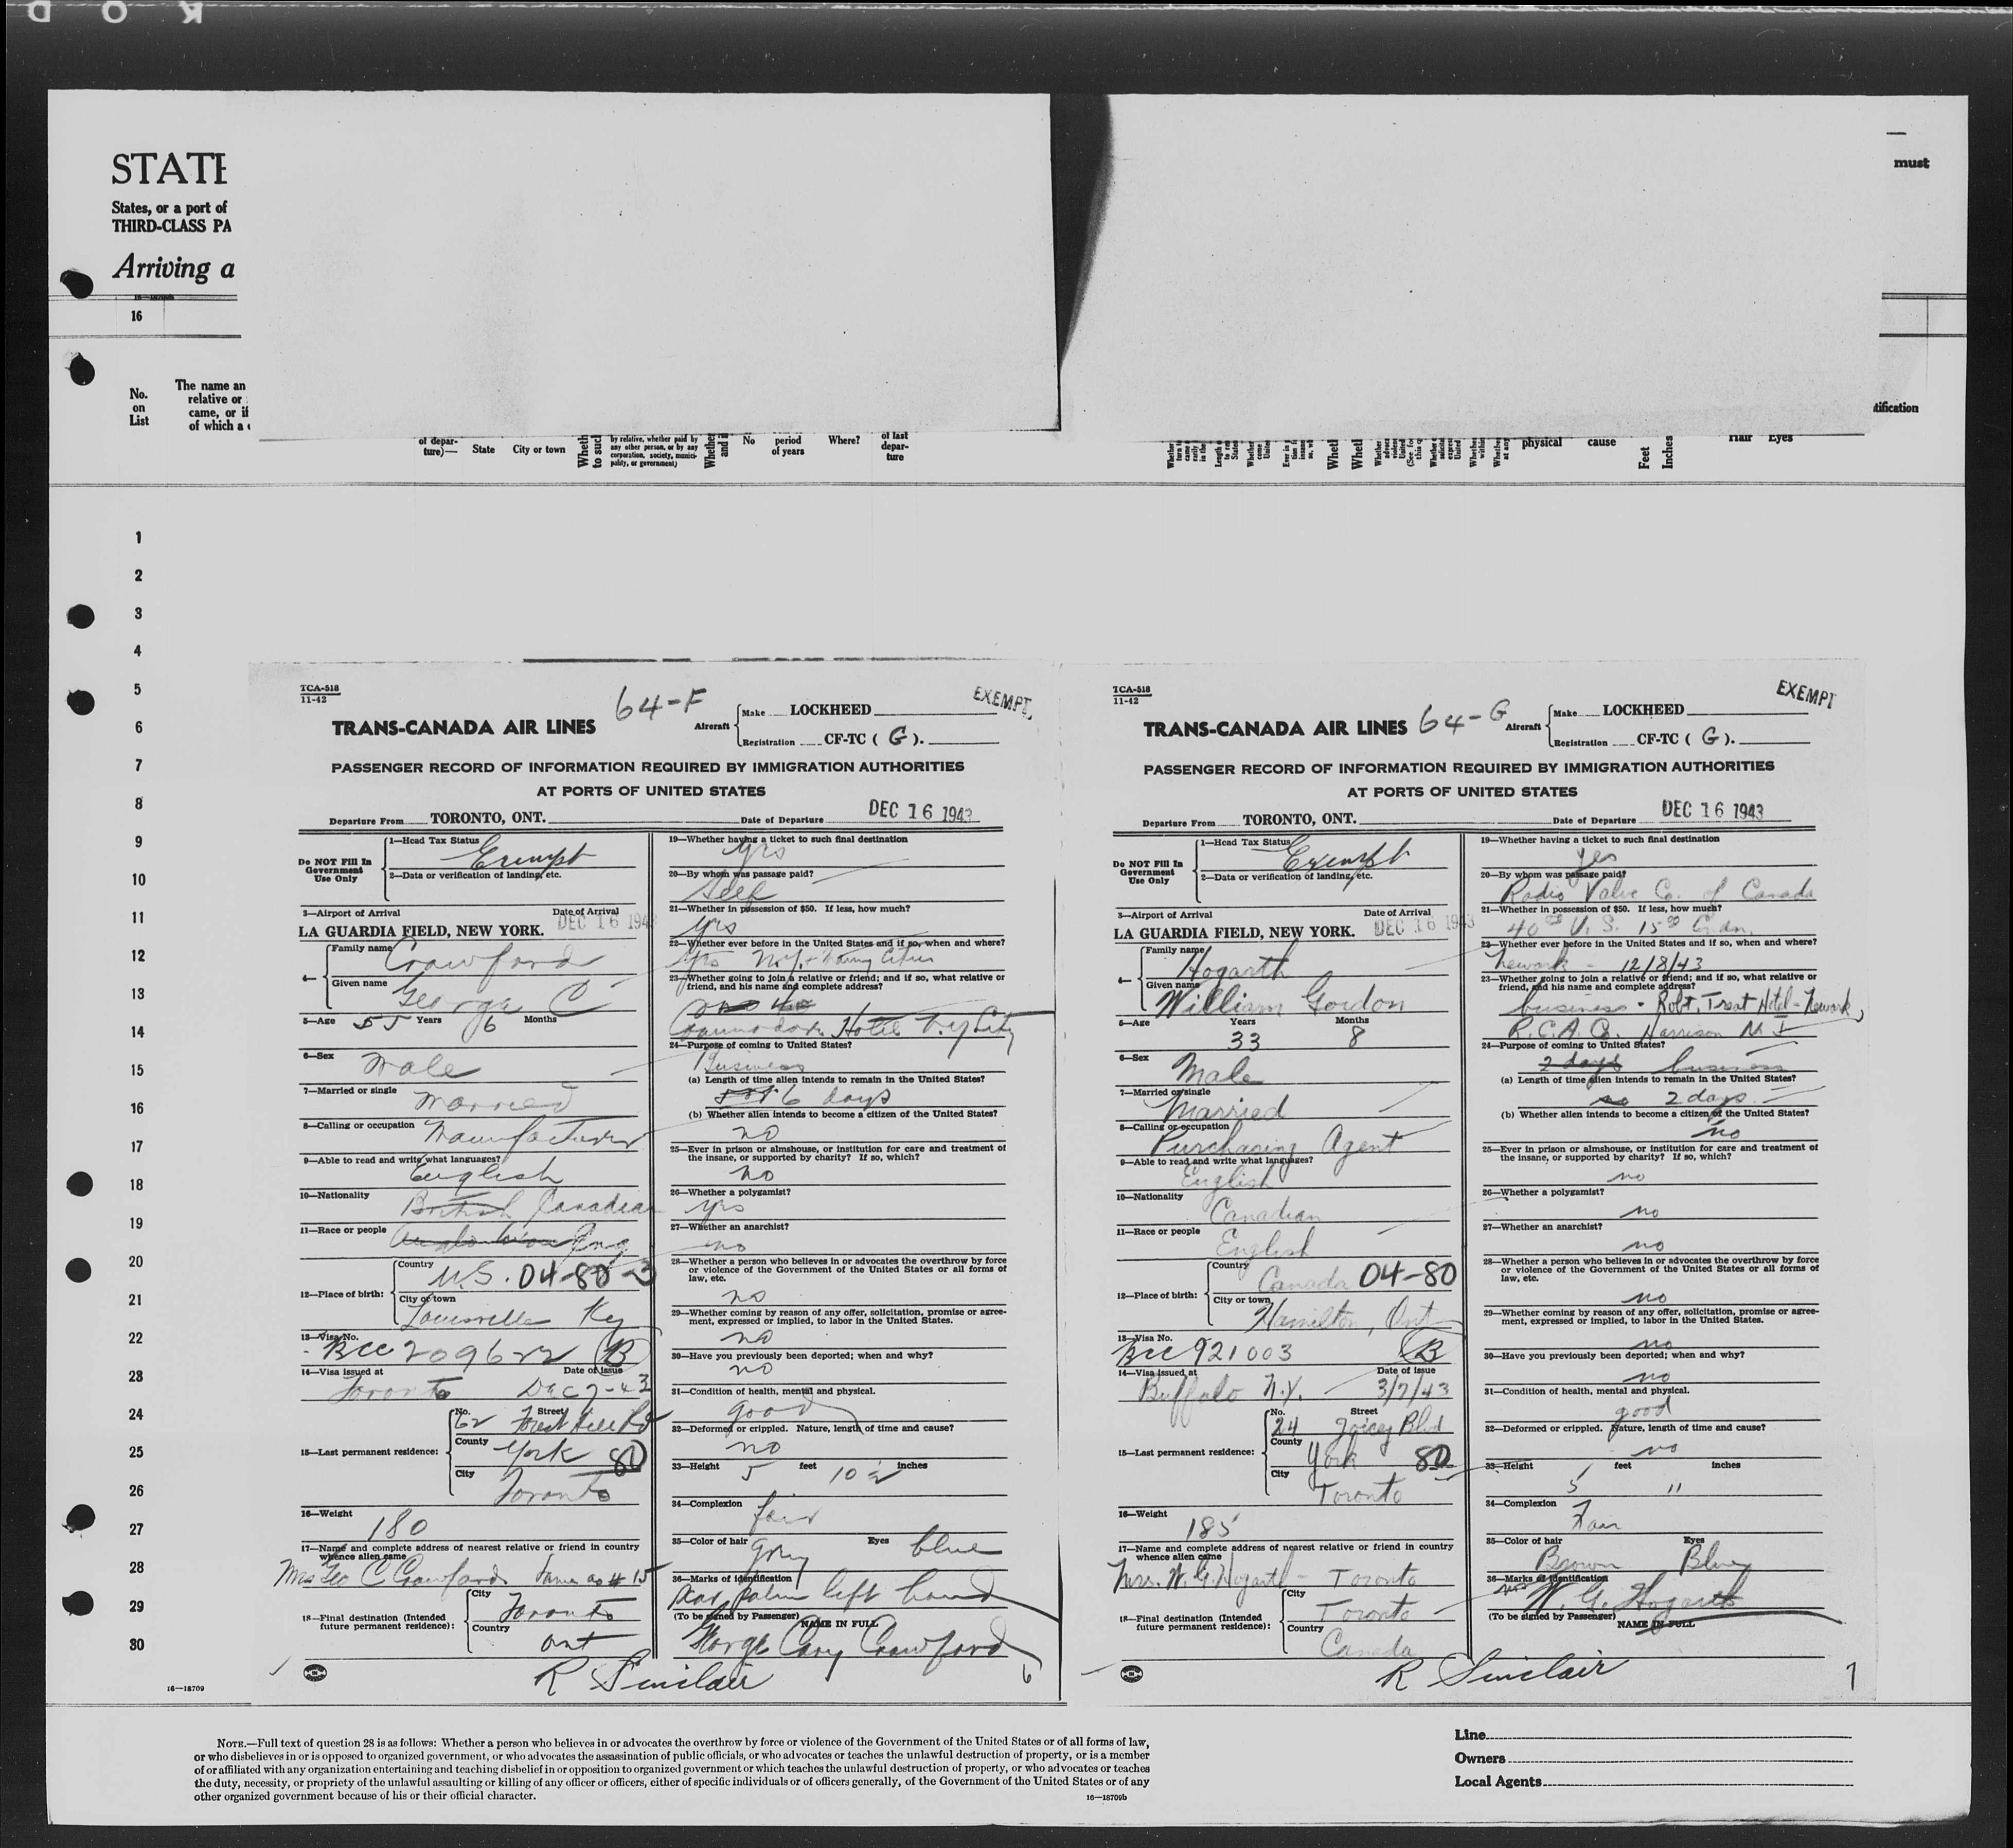 K O D
STATE
States, or a port of
THIRD-CLASS PA
Arriving a
16
must
No.
on
List
The name an
relative or
came, or if
of which a
tification
of depar-
ture)—
State
City or town
Wheth
to such
by relative, whether paid by
any other person, or by any
corporation, society, munici-
pality, or government)
Whether
and i
No
period
of years
Where?
of last
depar-
ture
physical
cause
Feet
Inches
Hair
Eyes
1
2
3
4
5
6
7
8
9
10
11
12
13
14
15
16
17
18
19
20
21
22
23
24
25
26
27
28
29
30
TCA-518
11-42
64-F
EXEMPT
TRANS-CANADA AIR LINES
Aircraft
Make LOCKHEED
Registration CF-TC ( G ).
PASSENGER RECORD OF INFORMATION REQUIRED BY IMMIGRATION AUTHORITIES
AT PORTS OF UNITED STATES
Departure From TORONTO, ONT. Date of Departure DEC 16 1943
Do NOT Fill In
Government
Use Only
1—Head Tax Status Exempt
2—Data or verification of landing, etc.
3—Airport of Arrival Date of Arrival
LA GUARDIA FIELD, NEW YORK. DEC 16 194
4—
Family name Crawford
Given name George C
5—Age 55 Years 6 Months
6—Sex Male
7—Married or single Married
8—Calling or occupation Manufacturer
9—Able to read and write what languages?
English
10—Nationality British Canadian
11—Race or people Eng
12—Place of birth:
Country U.S. 04-80-3
City or town
Louisville Ky
13—Visa No.
BCC 209622 B
14—Visa issued at Date of issue
Toronto Dec 7-43
15—Last permanent residence:
No. 62 Street Forest Hill Rd
County York 80
City Toronto
16—Weight 180
17—Name and complete address of nearest relative or friend in country
whence alien came
Mrs Geo C Crawford Same as # 15
18—Final destination (Intended
future permanent residence):
City Toronto
Country Ont
19—Whether having a ticket to such final destination
Yes
20—By whom was passage paid?
Self
21—Whether in possession of $50. If less, how much?
Yes
22—Whether ever before in the United States and if so, when and where?
Yes N.Y. + many cities
23—Whether going to join a relative or friend; and if so, what relative or
friend, and his name and complete address?
Commodore Hotel N.Y City
24—Purpose of coming to United States?
Business
(a) Length of time alien intends to remain in the United States?
6 days
(b) Whether alien intends to become a citizen of the United States?
no
25—Ever in prison or almshouse, or institution for care and treatment of
the insane, or supported by charity? If so, which?
no
26—Whether a polygamist?
yes
27—Whether an anarchist?
no
28—Whether a person who believes in or advocates the overthrow by force
or violence of the Government of the United States or all forms of
law, etc.
no
29—Whether coming by reason of any offer, solicitation, promise or agree-
ment, expressed or implied, to labor in the United States.
no
30—Have you previously been deported; when and why?
no
31—Condition of health, mental and physical.
good
32—Deformed or crippled. Nature, length of time and cause?
no
33—Height 5 feet 10 ½ inches
34—Complexion fair
35—Color of hair grey Eyes blue
36—Marks of identification
Scar palm left hand
(To be signed by Passenger) NAME IN FULL
George Cary Crawford
R Sinclair
6
TCA-518
11-42
64-G
EXEMPT
TRANS-CANADA AIR LINES
Aircraft
Make LOCKHEED
Registration CF-TC ( G ).
PASSENGER RECORD OF INFORMATION REQUIRED BY IMMIGRATION AUTHORITIES
AT PORTS OF UNITED STATES
Departure From TORONTO, ONT. Date of Departure DEC 16 1943
Do NOT Fill In
Government
Use Only
1—Head Tax Status Exempt
2—Data or verification of landing, etc.
3—Airport of Arrival Date of Arrival
LA GUARDIA FIELD, NEW YORK. DEC 16 1943
4—
Family name Hogarth
Given name William Gordon
5—Age Years Months
33 8
6—Sex Male
7—Married or single
Married
8—Calling or occupation
Purchasing Agent
9—Able to read and write what languages?
English
10—Nationality
Canadian
11—Race or people
English
12—Place of birth:
Country Canada 04-80
City or town Hamilton, Ont
13—Visa No.
BCC 921003 B
14—Visa issued at Date of issue
Buffalo N.Y. 3/7/43
15—Last permanent residence:
No. 24 Street Joicey Blvd
County York 80
City Toronto
16—Weight 185
17—Name and complete address of nearest relative or friend in country
whence alien came
Mrs. W. G. Hogarth - Toronto
18—Final destination (Intended
future permanent residence):
City Toronto
Country Canada
19—Whether having a ticket to such final destination
yes
20—By whom was passage paid?
Radio Valve Co. of Canada
21—Whether in possession of $50. If less, how much?
40 00 U. S. 15 00 Cndn.
22—Whether ever before in the United States and if so, when and where?
Newark - 12/8/43
23—Whether going to join a relative or friend; and if so, what relative or
friend, and his name and complete address?
business - Robt. Treat Hotel - Newark,
R.C.A. Co. Harrison N. J.
24—Purpose of coming to United States?
2 days business
(a) Length of time alien intends to remain in the United States?
no 2 days
(b) Whether alien intends to become a citizen of the United States?
no
25—Ever in prison or almshouse, or institution for care and treatment of
the insane, or supported by charity? If so, which?
no
26—Whether a polygamist?
no
27—Whether an anarchist?
no
28—Whether a person who believes in or advocates the overthrow by force
or violence of the Government of the United States or all forms of
law, etc.
no
29—Whether coming by reason of any offer, solicitation, promise or agree-
ment, expressed or implied, to labor in the United States.
no
30—Have you previously been deported; when and why?
no
31—Condition of health, mental and physical.
good
32—Deformed or crippled. Nature, length of time and cause?
no
33—Height feet inches
5 11
34—Complexion
Fair
35—Color of hair Eyes
Brown Blue
36—Marks of identification
W. G. Hogarth
(To be signed by Passenger) NAME IN FULL
R Sinclair
7
16—18709
NOTE.—Full text of question 28 is as follows: Whether a person who believes in or advocates the overthrow by force or violence of the Government of the United States or of all forms of law,
or who disbelieves in or is opposed to organized government, or who advocates the assassination of public officials, or who advocates or teaches the unlawful destruction of property, or is a member
of or affiliated with any organization entertaining and teaching disbelief in or opposition to organized government or which teaches the unlawful destruction of property, or who advocates or teaches
the duty, necessity, or propriety of the unlawful assaulting or killing of any officer or officers, either of specific individuals or of officers generally, of the Government of the United States or of any
other organized government because of his or their official character.
16—18709b
Line
Owners
Local Agents